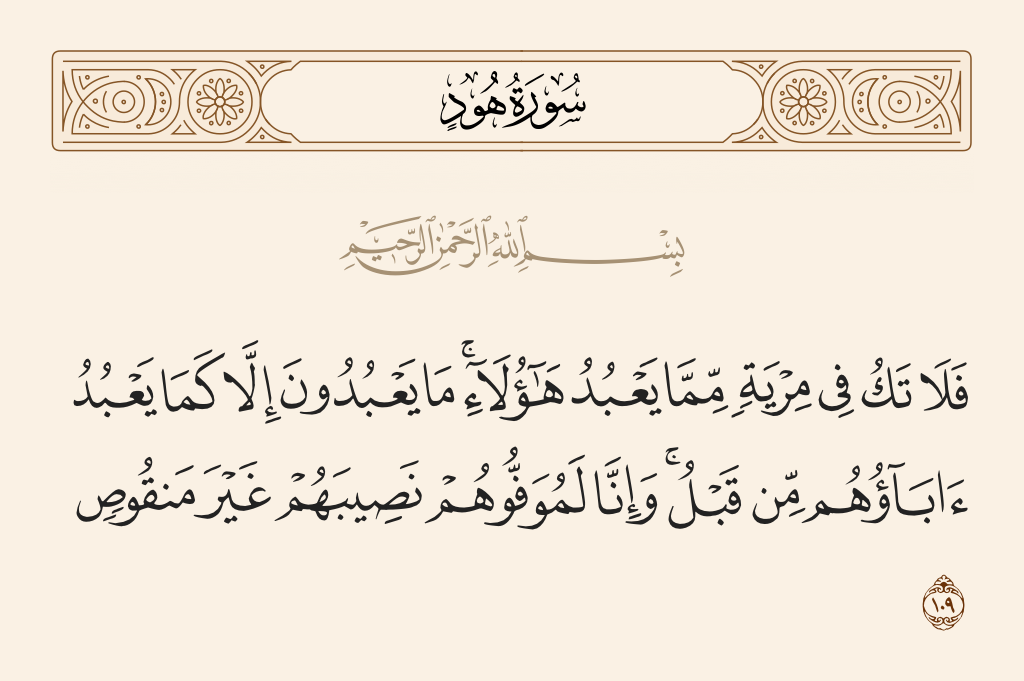 سُورَةُ هُودٍ
بِسْمِ ٱللَّهِ ٱلرَّحْمَٰنِ ٱلرَّحِيمِ
فَلَا تَكُ فِى مِرْيَةٍ مِّمَّا يَعْبُدُ هَٰٓؤُلَآءِ ۚ مَا يَعْبُدُونَ إِلَّا كَمَا يَعْبُدُ
ءَابَآؤُهُم مِّن قَبْلُ ۚ وَإِنَّا لَمُوَفُّوهُمْ نَصِيبَهُمْ غَيْرَ مَنقُوصٍ
١٠٩